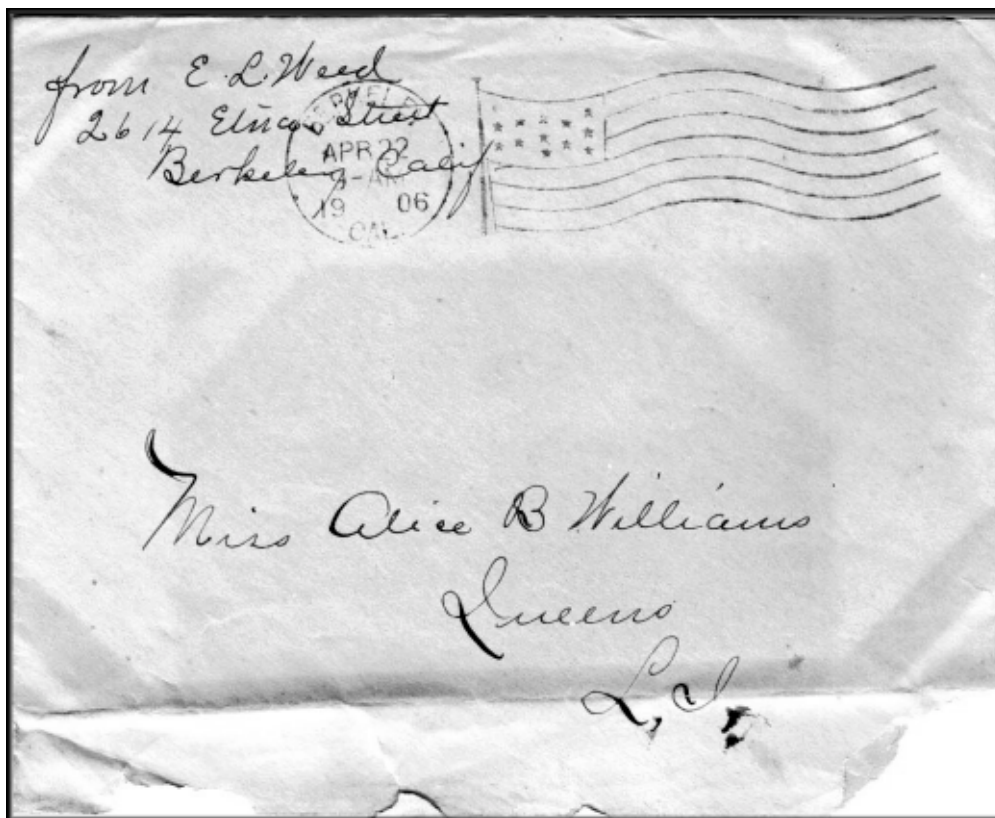 from E. L. Weed
2614 Etna Street
Berkeley Calif
BERKELEY
APR 22
AM
19 06
CAL.
Miss Alice B Williams
Queens
L. I.